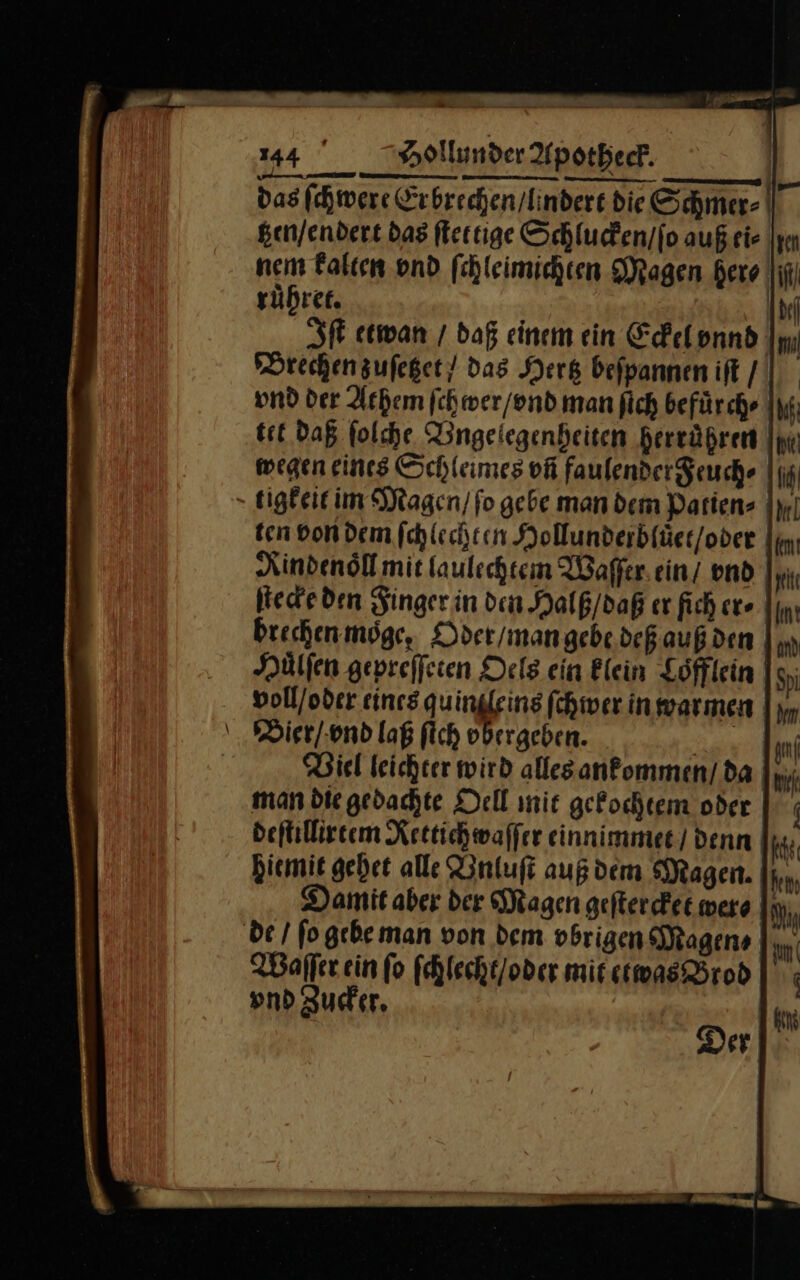 144 Hollunder Apotheck.
das ſchwere Erbrechen/lindert die Schmer⸗
tzen/endert das ſtettige Schlucken/ſo auß ei⸗
nem kalten vnd ſchleimichten Magen her⸗
ruͤhret.
Iſt etwan / daß einem ein Eckel vnnd
Brechen zuſetzet / das Hertz beſpannen iſt /
vnd der Athem ſchwer/vnd man ſich befuͤrch⸗
tet daß ſolche Vngelegenheiten herruͤhren
wegen eines Schleimes vñ faulender Feuch⸗
tigkeit im Magen/ ſo gebe man dem Patien⸗
ten von dem ſchlechten Hollunderbluͤet/oder
Rindenoͤll mit laulechtem Waſſer ein / vnd
ſtecke den Finger in den Halß/daß er ſich er⸗
brechen moͤge, Oder/man gebe deß auß den
Huͤlſen gepreſſeten Oels ein klein Loͤfflein
voll/oder eines quintleins ſchwer in warmen
Bier/ vnd laß ſich vbergeben.
Viel leichter wird alles ankommen/ da
man die gedachte Oell mit gekochtem oder
deſtillirtem Rettichwaſſer einnimmet / denn
hiemit gehet alle Vnluſt auß dem Magen.
Damit aber der Magen geſtercket wer⸗
de / ſo gebe man von dem vbrigen Magen⸗
Waſſer ein ſo ſchlecht/oder mit etwas Brod
vnd Zucker.
Der